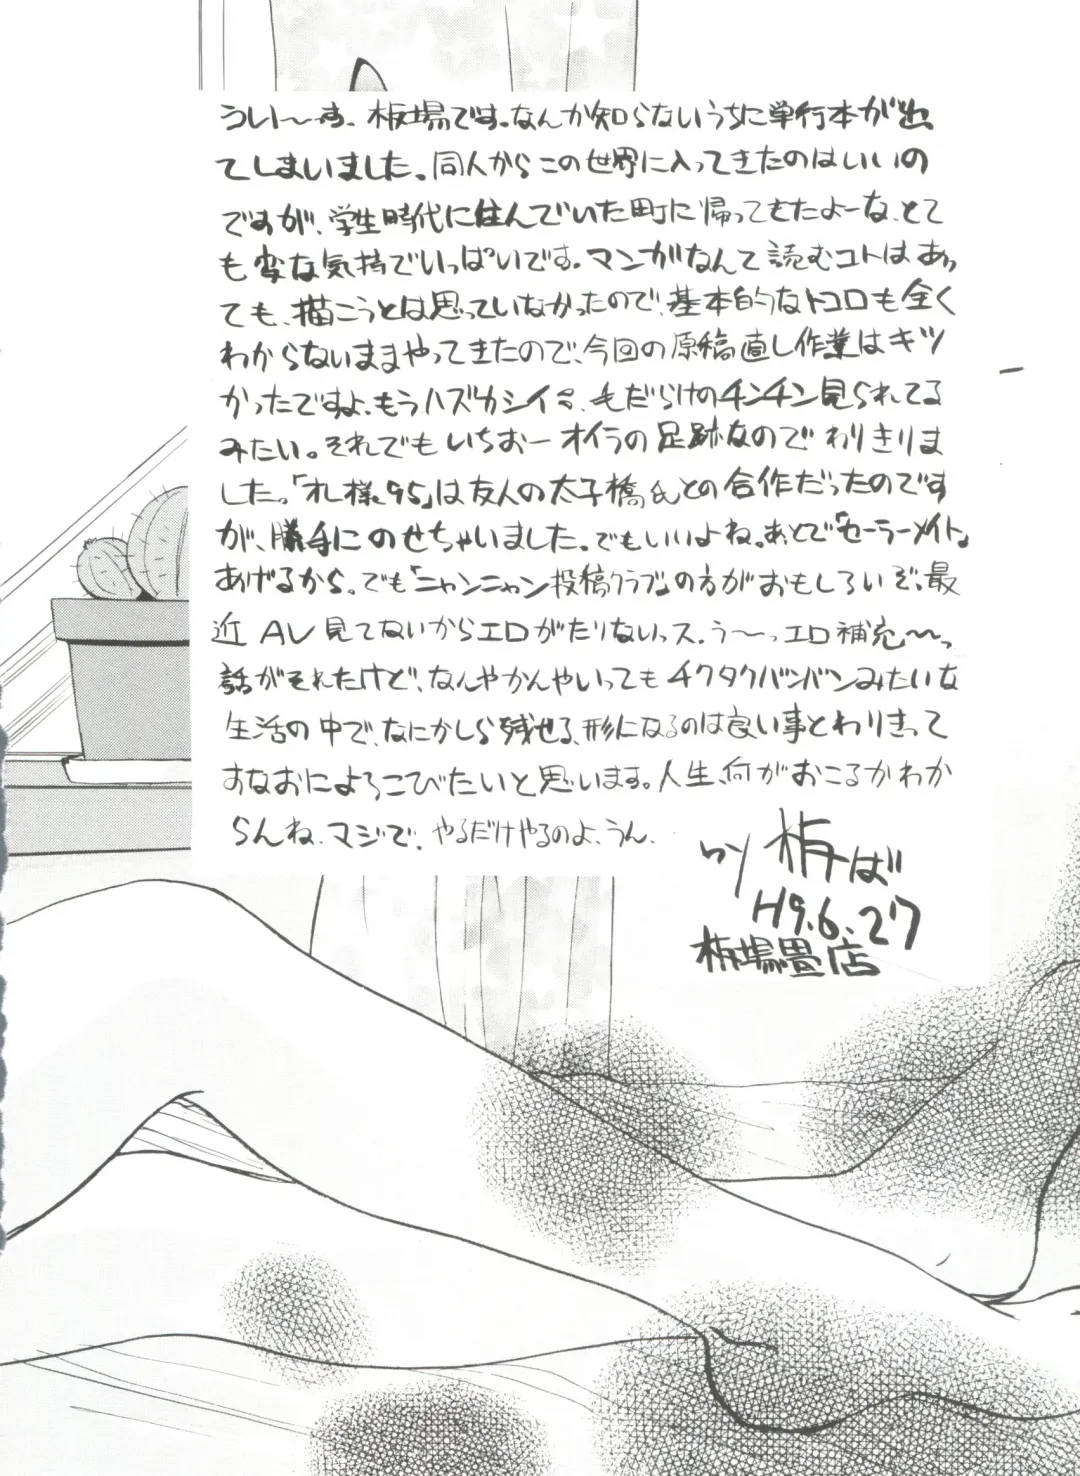 ういーす。板場です。なんか知らないうちに単行本が出
てしまいました。同人からこの世界に入ってきたのはいいの
ですが、学生時代に住んでいた町に帰ってきたよーな、とて
も変な気持でいっぱいです。マンガなんて読むコトはあっ
ても、描こうとは思っていなかったので、基本的なトコロも全く
わからないままやってきたので、今回の原稿直し作業はキツ
かったですよ。もうハズカシイ、毛だらけのチンチン見られてる
みたい。それでもいちおーオイラの足跡なのでわりきりま
した。「オレ様95」は友人の太子橋氏との合作だったのです
が、勝手にのせちゃいました。でもいいよね。あとで「セーラーメイト」
あげるから。でも「ニャンニャン投稿クラブ」の方がおもしろいぞ、最
近AV見てないからエロがたりないっス。う〜っエロ補充〜っ
話がそれたけど、なんやかんやいってもチクタクバンバンみたいな
生活の中で、なにかしら残せる、形になるのは良い事とわりきって
すなおによろこびたいと思います。人生、何がおこるかわか
らんね、マジで、やるだけやるのよ、うん。
by 板ば
H9.6.27
板場畳店